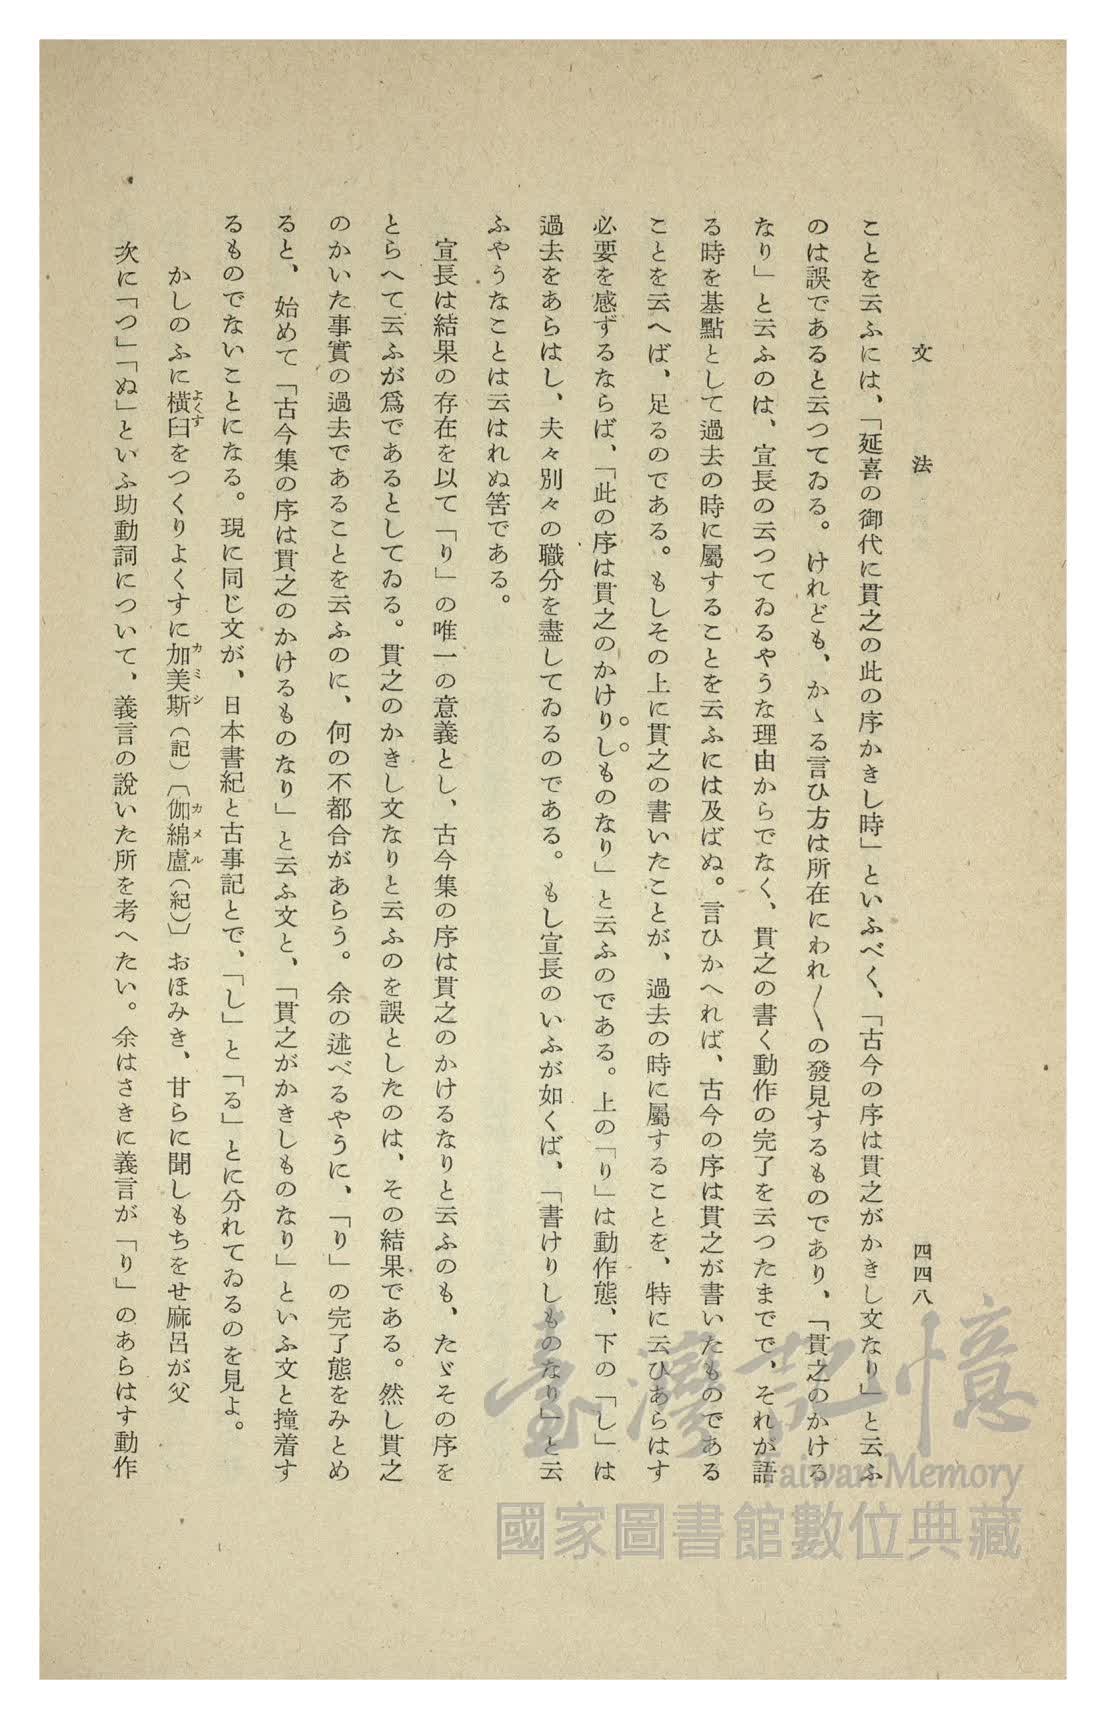 文法
四四八
ことを云ふには、「延喜の御代に貫之の此の序かきし時」といふべく、「古今の序は貫之がかきし文なり」と云ふ
のは誤であると云つてゐる。けれども、かゝる言ひ方は所在にわれ〳〵の發見するものであり、「貫之のかける
なり」と云ふのは、宣長の云つてゐるやうな理由からでなく、貫之の書く動作の完了を云つたまでで、それが語
る時を基點として過去の時に屬することを云ふには及ばぬ。言ひかへれば、古今の序は貫之が書いたものである
ことを云へば、足るのである。もしその上に貫之の書いたことが、過去の時に屬することを、特に云ひあらはす
必要を感ずるならば、「此の序は貫之のかけりしものなり」と云ふのである。上の「り」は動作態、下の「し」は
過去をあらはし、夫々別々の職分を盡してゐるのである。もし宣長のいふが如くば、「書けりしものなり」と云
ふやうなことは云はれぬ筈である。
宣長は結果の存在を以て「り」の唯一の意義とし、古今集の序は貫之のかけるなりと云ふのも、たゞその序を
とらへて云ふが爲であるとしてゐる。貫之のかきし文なりと云ふのを誤としたのは、その結果である。然し貫之
のかいた事實の過去であることを云ふのに、何の不都合があらう。余の述べるやうに、「り」の完了態をみとめ
ると、始めて「古今集の序は貫之のかけるものなり」と云ふ文と、「貫之がかきしものなり」といふ文と撞着す
るものでないことになる。現に同じ文が、日本書紀と古事記とで、「し」と「る」とに分れてゐるのを見よ。
かしのふに橫臼をつくりよくすに加美斯（記）〔伽綿盧（紀）〕おほみき、甘らに聞しもちをせ麻呂が父
次に「つ」「ぬ」といふ助動詞について、義言の說いた所を考へたい。余はさきに義言が「り」のあらはす動作
よくす
カミシ
カメル
臺灣記憶
Taiwan Memory
國家圖書館數位典藏